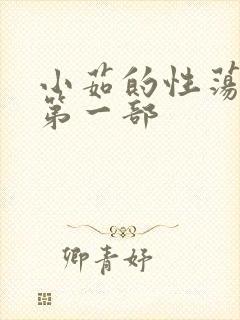 小茹的性荡
第一部
卿青妤